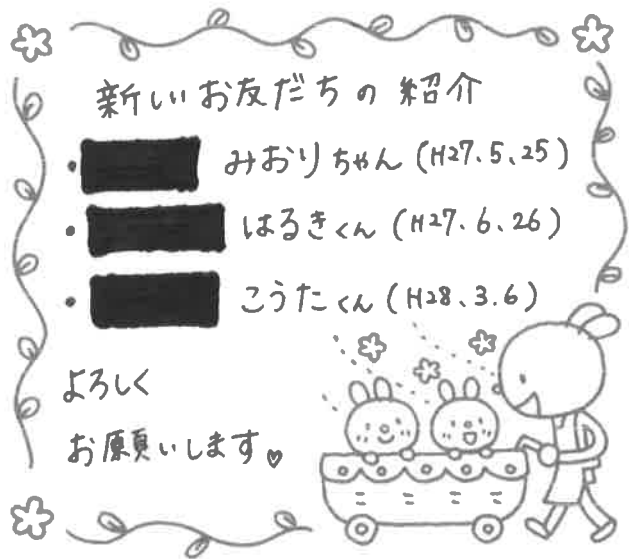 新しいお友だちの紹介
・ みおりちゃん(H27.5.25)
・ はるきくん(H27.6.26)
・ こうたくん(H28.3.6)
よろしく
お願いします♡